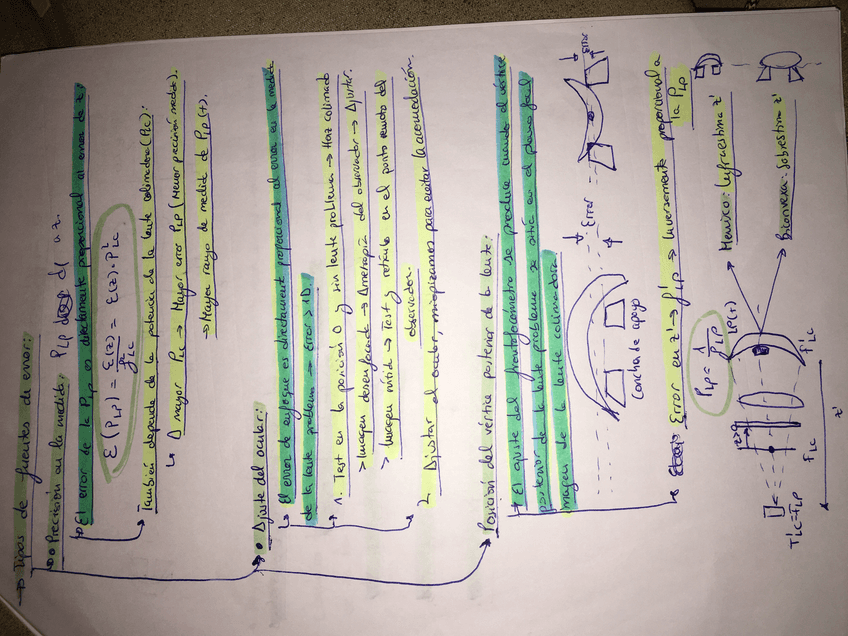 → Tipos de fuentes de error:
• Precisión en la medida: P_LP a z.
↳ El error de la P_LP es directamente proporcional al error de z:
ε(P_LP) = ε(z)/f'²_LC = ε(z)·P²_LC
También depende de la potencia de la lente colimadora (P_LC):
↳ A mayor P_LC → Mayor error P_LP (Menor precisión medida).
→ Mayor rango de medida de P_LP (±).
• Ajuste del ocular:
↳ El error de enfoque es directamente proporcional al error en la medida
de la lente problema → Error > 1D
↳ 1. Test en la posición 0 y sin lente problema → Haz colimado
> Imagen desenfocada → Ametropía del observador → Ajustar.
> Imagen nítida → Test y retículo en el punto remoto del
observador.
2. Ajustar el ocular, miopizamos para evitar la acomodación.
Posición del vértice posterior de la lente:
↳ El ajuste del frontofocómetro se produce cuando el vértice
posterior de la lente problema se sitúa en el plano focal
imagen de la lente colimadora.
Error
Error
Concha de apoyo
↳ Error en z' → f'_LP → Inversamente proporcional a
la P_LP
P_LP = 1/f'_LP
Menisco: Infraestima z'
Biconvexa: Sobrestima z'
LP(+)
f_LC
f'_LC
z'